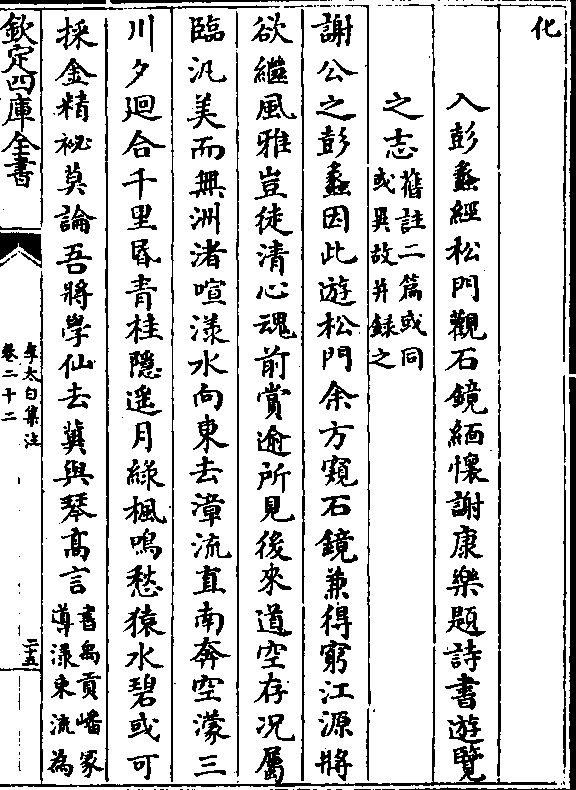 化
入彭蠡經松門觀石鏡緬懷謝康樂題詩書遊覽
之志舊註二篇或同
或異故并錄之
謝公之彭蠡因此遊松門余方窺石鏡兼得窮江源將
欲繼風雅豈徒清心魂前賞逾所見後來道空存况屬
臨汎美而無洲渚喧漾水向東去漳流直南奔空濛三
川夕廻合千里昏青桂隱遙月綠楓鳴愁猿水碧或可
採金精祕莫論吾將學仙去冀與琴髙言書禹貢嶓冢
導漾東流為
欽定四庫全書
李太白集注
卷二十二
二十五